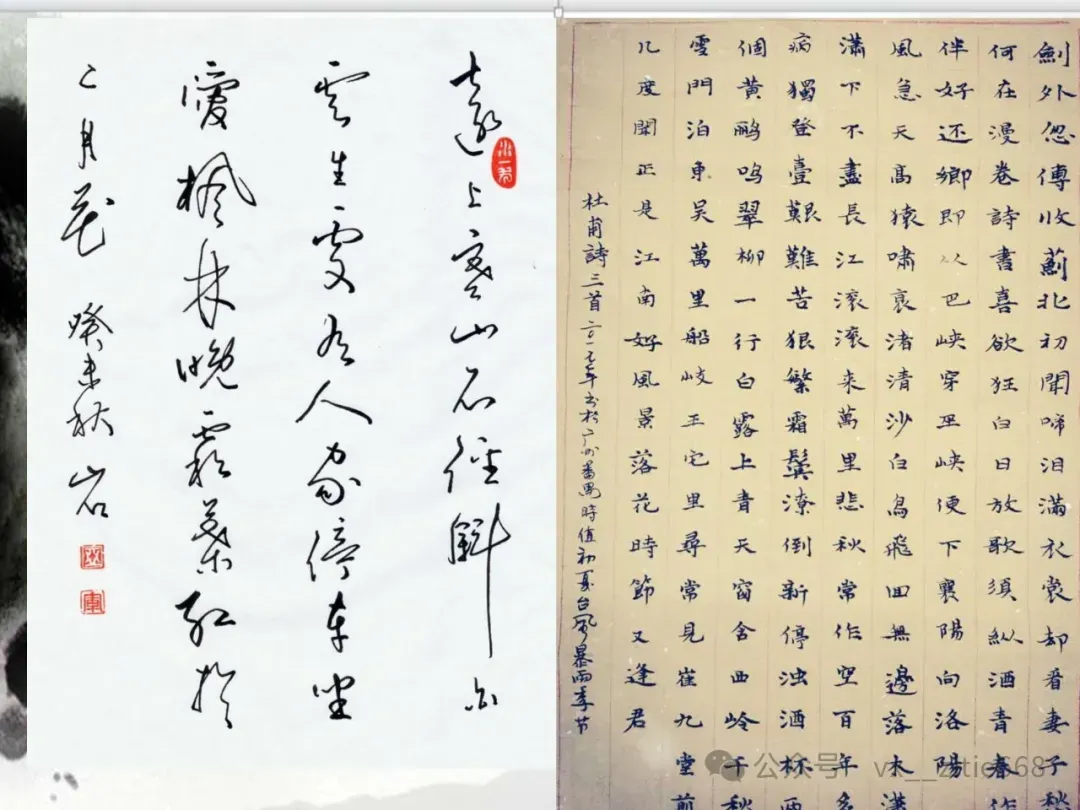 遠上寒山石徑斜白
雲生處有人家停車坐
愛楓林晚霜葉紅於
二月花 癸未秋 岩
劍外忽傳收薊北初聞啼泪滿衣裳却看妻子愁
何在漫卷詩書喜欲狂白日放歌須縱酒青春作
伴好还鄉即从巴峽穿巫峽便下襄陽向洛陽
風急天高猿嘯哀渚清沙白鳥飛回無邊落木瀟
瀟下不盡長江滚滚来萬里悲秋常作客百年多
病獨登臺艱難苦恨繁霜鬢潦倒新停浊酒杯两
個黄鹂鸣翠柳一行白露上青天窗含西岭千秋
雪門泊東吴萬里船岐王宅里尋常見崔九堂前
几度聞正是江南好風景落花時節又逢君
杜甫詩三首 二〇一七年书於广州番禺時值初夏台風暴雨季节
公众号